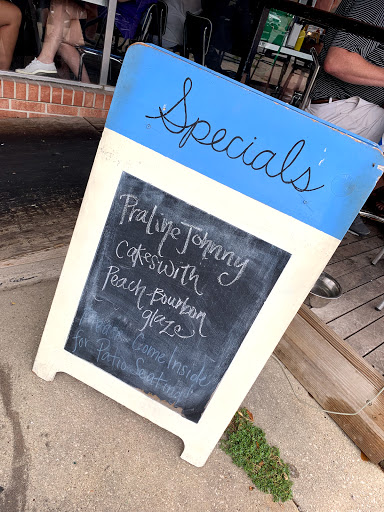 Specials
Praline Johnny
Cakes with
Peach-Bourbon
glaze
Come Inside
for Patio Seating!